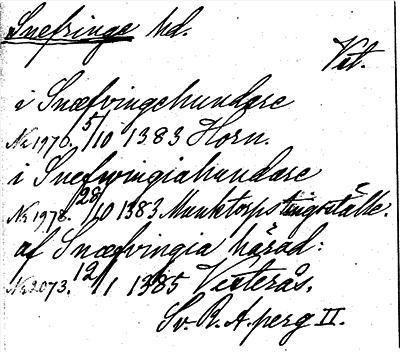 Snefringe hd.
Vst.
i Snæfvingehundare
No 1970. 5/10 1383 Horn.
i Snefwringiahundare
No 1978. 28/10 1383 Munktorps tingsställe.
af Snæfvingia hærad:
No 2073. 12/1 1385 Vesterås.
Sv. R. A. perg II.